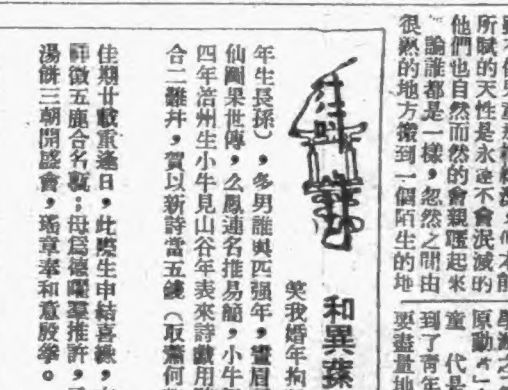 所賦的天性是永遠不會泯滅的
他們也自然而然的會親暱起來
論誰都是一樣,忽然之間由
很熟的地方搬到一個陌生的地
原動
童 代長
到了青年
要盡量地
和異
笑我婚年抱
年生長孫),多男誰與匹强年,雪眉
仙圖果世傳,么鳳連名推易節,小牛
四年涪州生小牛見山谷年表來詩戲用
合二難井,賀以新詩當五錢(取蕭何
佳期廿載重逢日,此際生申結喜緣,
祥徵五鳳合名;母爲德曜羣推許,
湯餅三朝開盛會,瑤章奉和意殷拳。